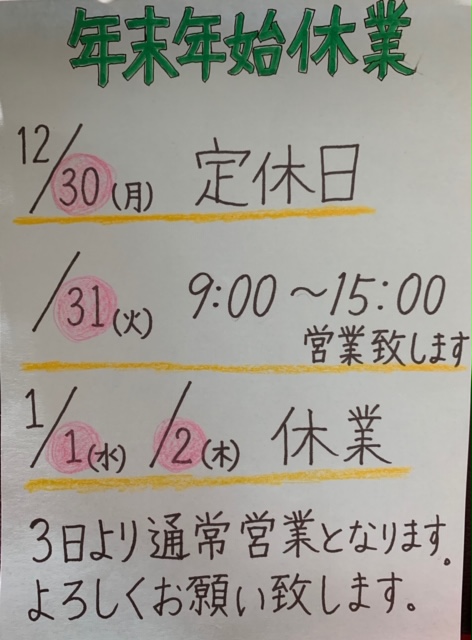 年末年始休業
12/30(月) 定休日
/31(火) 9:00～15:00
営業致します
1/1(水) /2(木) 休業
3日より通常営業となります。
よろしくお願い致します。